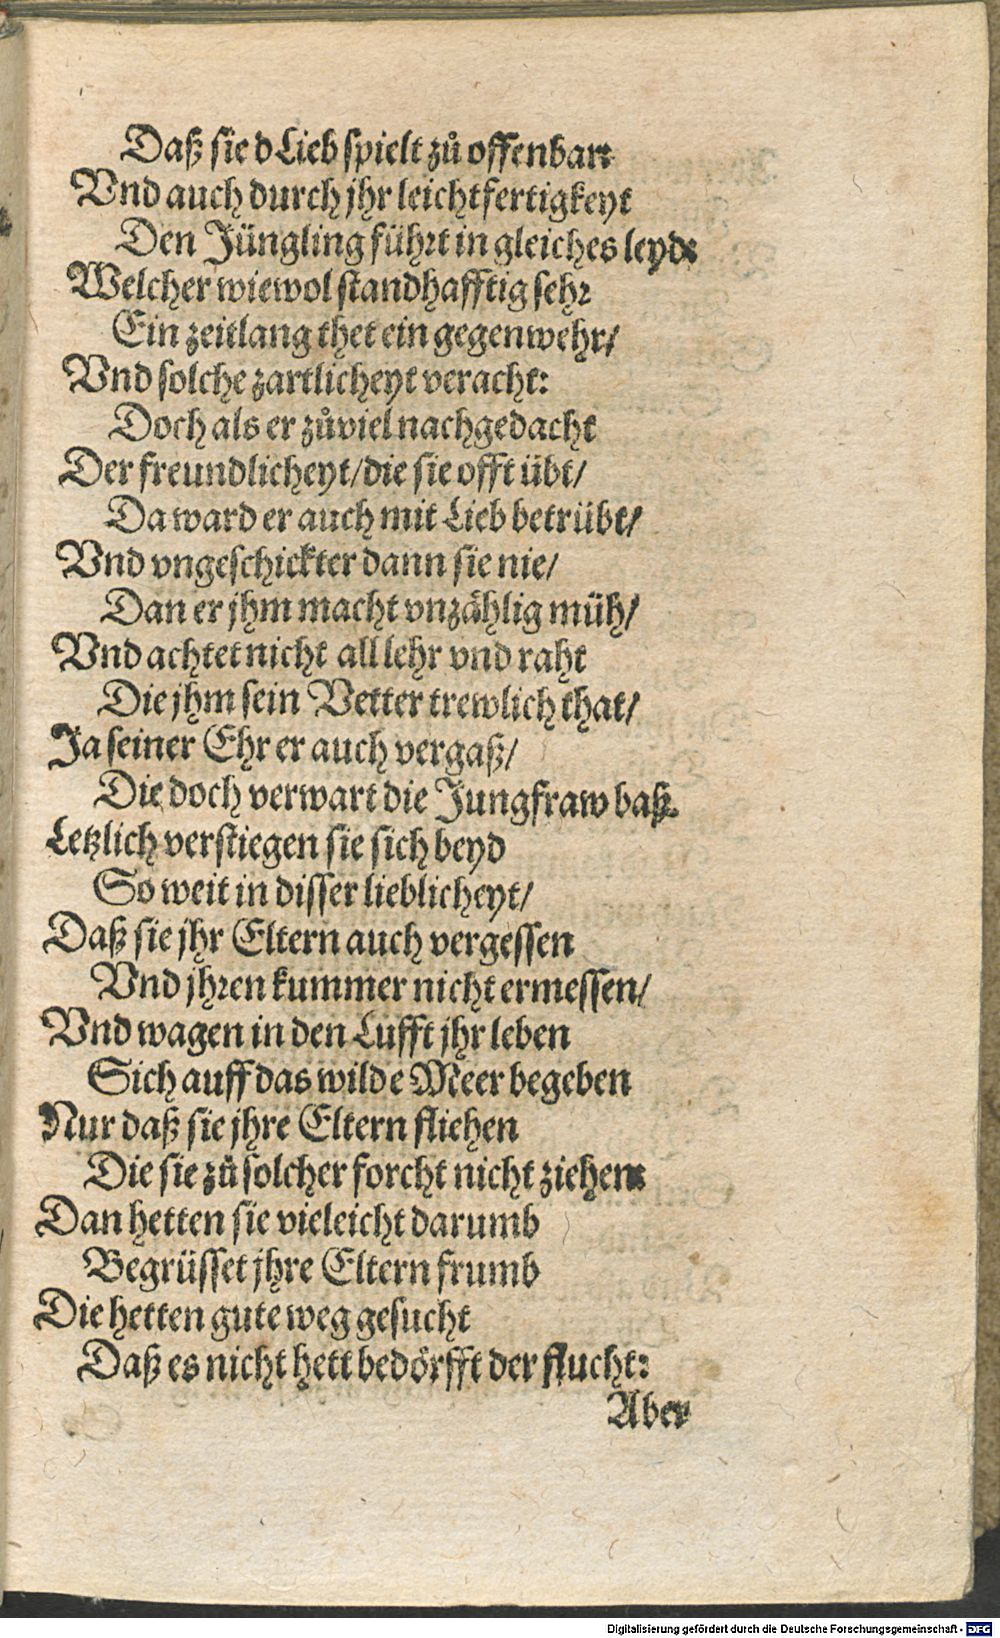 Daß sie d Lieb spielt zů offenbar:
Vnd auch durch jhr leichtfertigkeyt
Den Jüngling führt in gleiches leyd:
Welcher wiewol standhafftig sehr
Ein zeitlang thet ein gegenwehr/
Vnd solche zartlicheyt veracht:
Doch als er zůviel nachgedacht
Der freundlicheyt/ die sie offt übt/
Da ward er auch mit Lieb betrübt/
Vnd vngeschickter dann sie nie/
Dan er jhm macht vnzåhlig müh/
Vnd achtet nicht all lehr vnd raht
Die jhm sein Vetter trewlich that/
Ja seiner Ehr er auch vergaß/
Die doch verwart die Jungfraw baß.
Letzlich verstiegen sie sich beyd
So weit in disser lieblicheyt/
Daß sie jhr Eltern auch vergessen
Vnd jhren kummer nicht ermessen/
Vnd wagen in den Lufft jhr leben
Sich auff das wilde Meer begeben
Nur daß sie jhre Eltern fliehen
Die sie zů solcher forcht nicht ziehen:
Dan hetten sie vieleicht darumb
Begrüsset jhre Eltern frumb
Die hetten gute weg gesucht
Daß es nicht hett bedörfft der flucht:
Aber
Digitalisierung gefördert durch die Deutsche Forschungsgemeinschaft - DFG